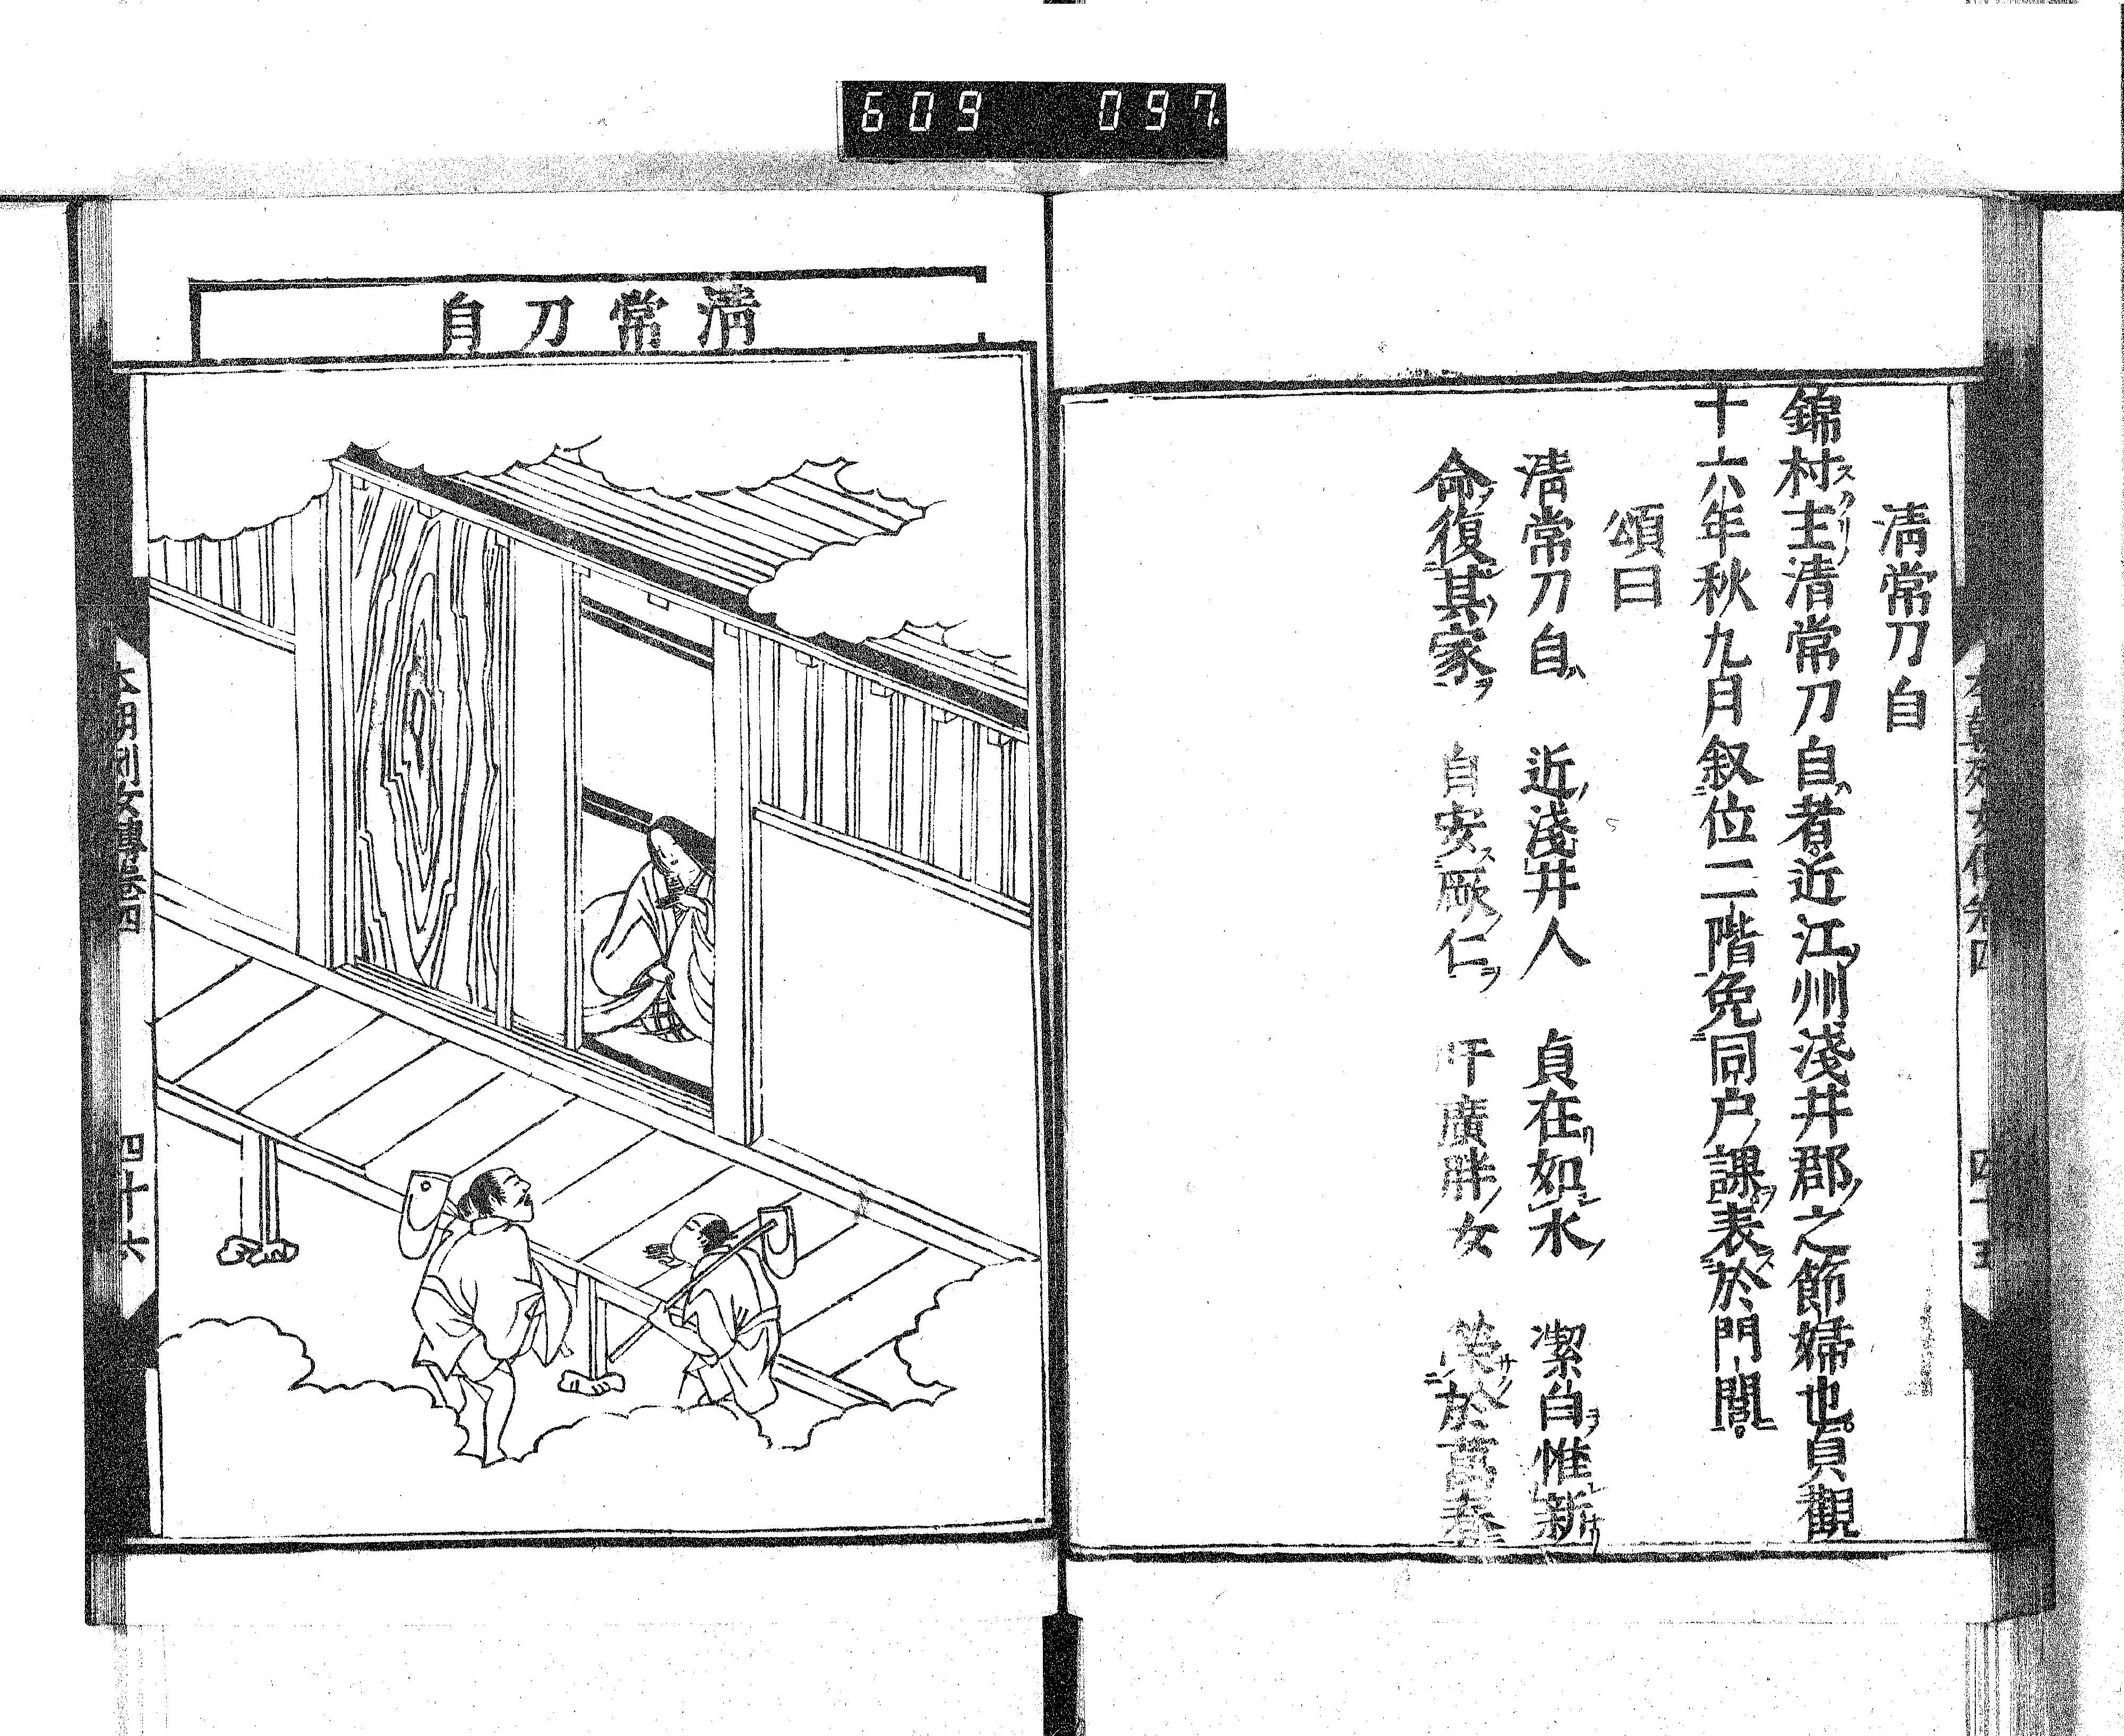 609 097
清常刀自
錦村主清常刀自者近江州淺井郡之節婦也貞觀
十六年秋九月叙位二階免同戸課表於門閭
頌曰
清常刀自 近淺井人 貞在如水 潔自惟新
命復其家 自安厥仁 吁廣胖女 於萬春
清常刀自
本朝列女傳卷四 四十六
本朝列女傳卷四 四十五